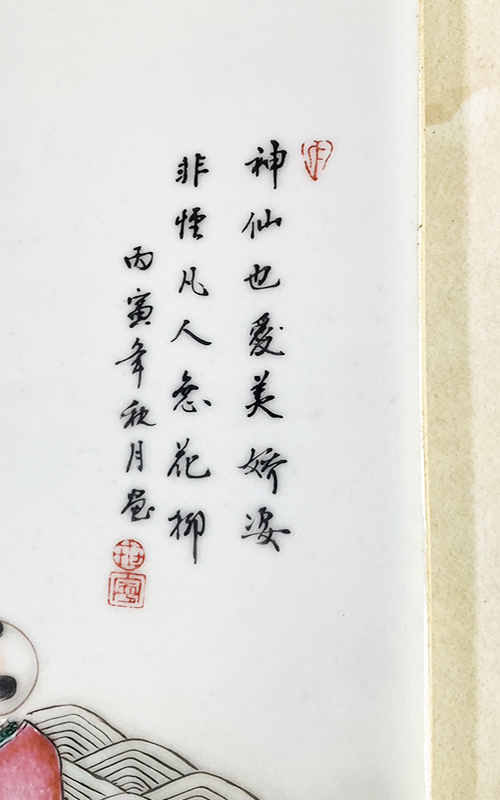 神仙也愛美嬌姿
非怪凡人戀花柳
丙寅年秋月画